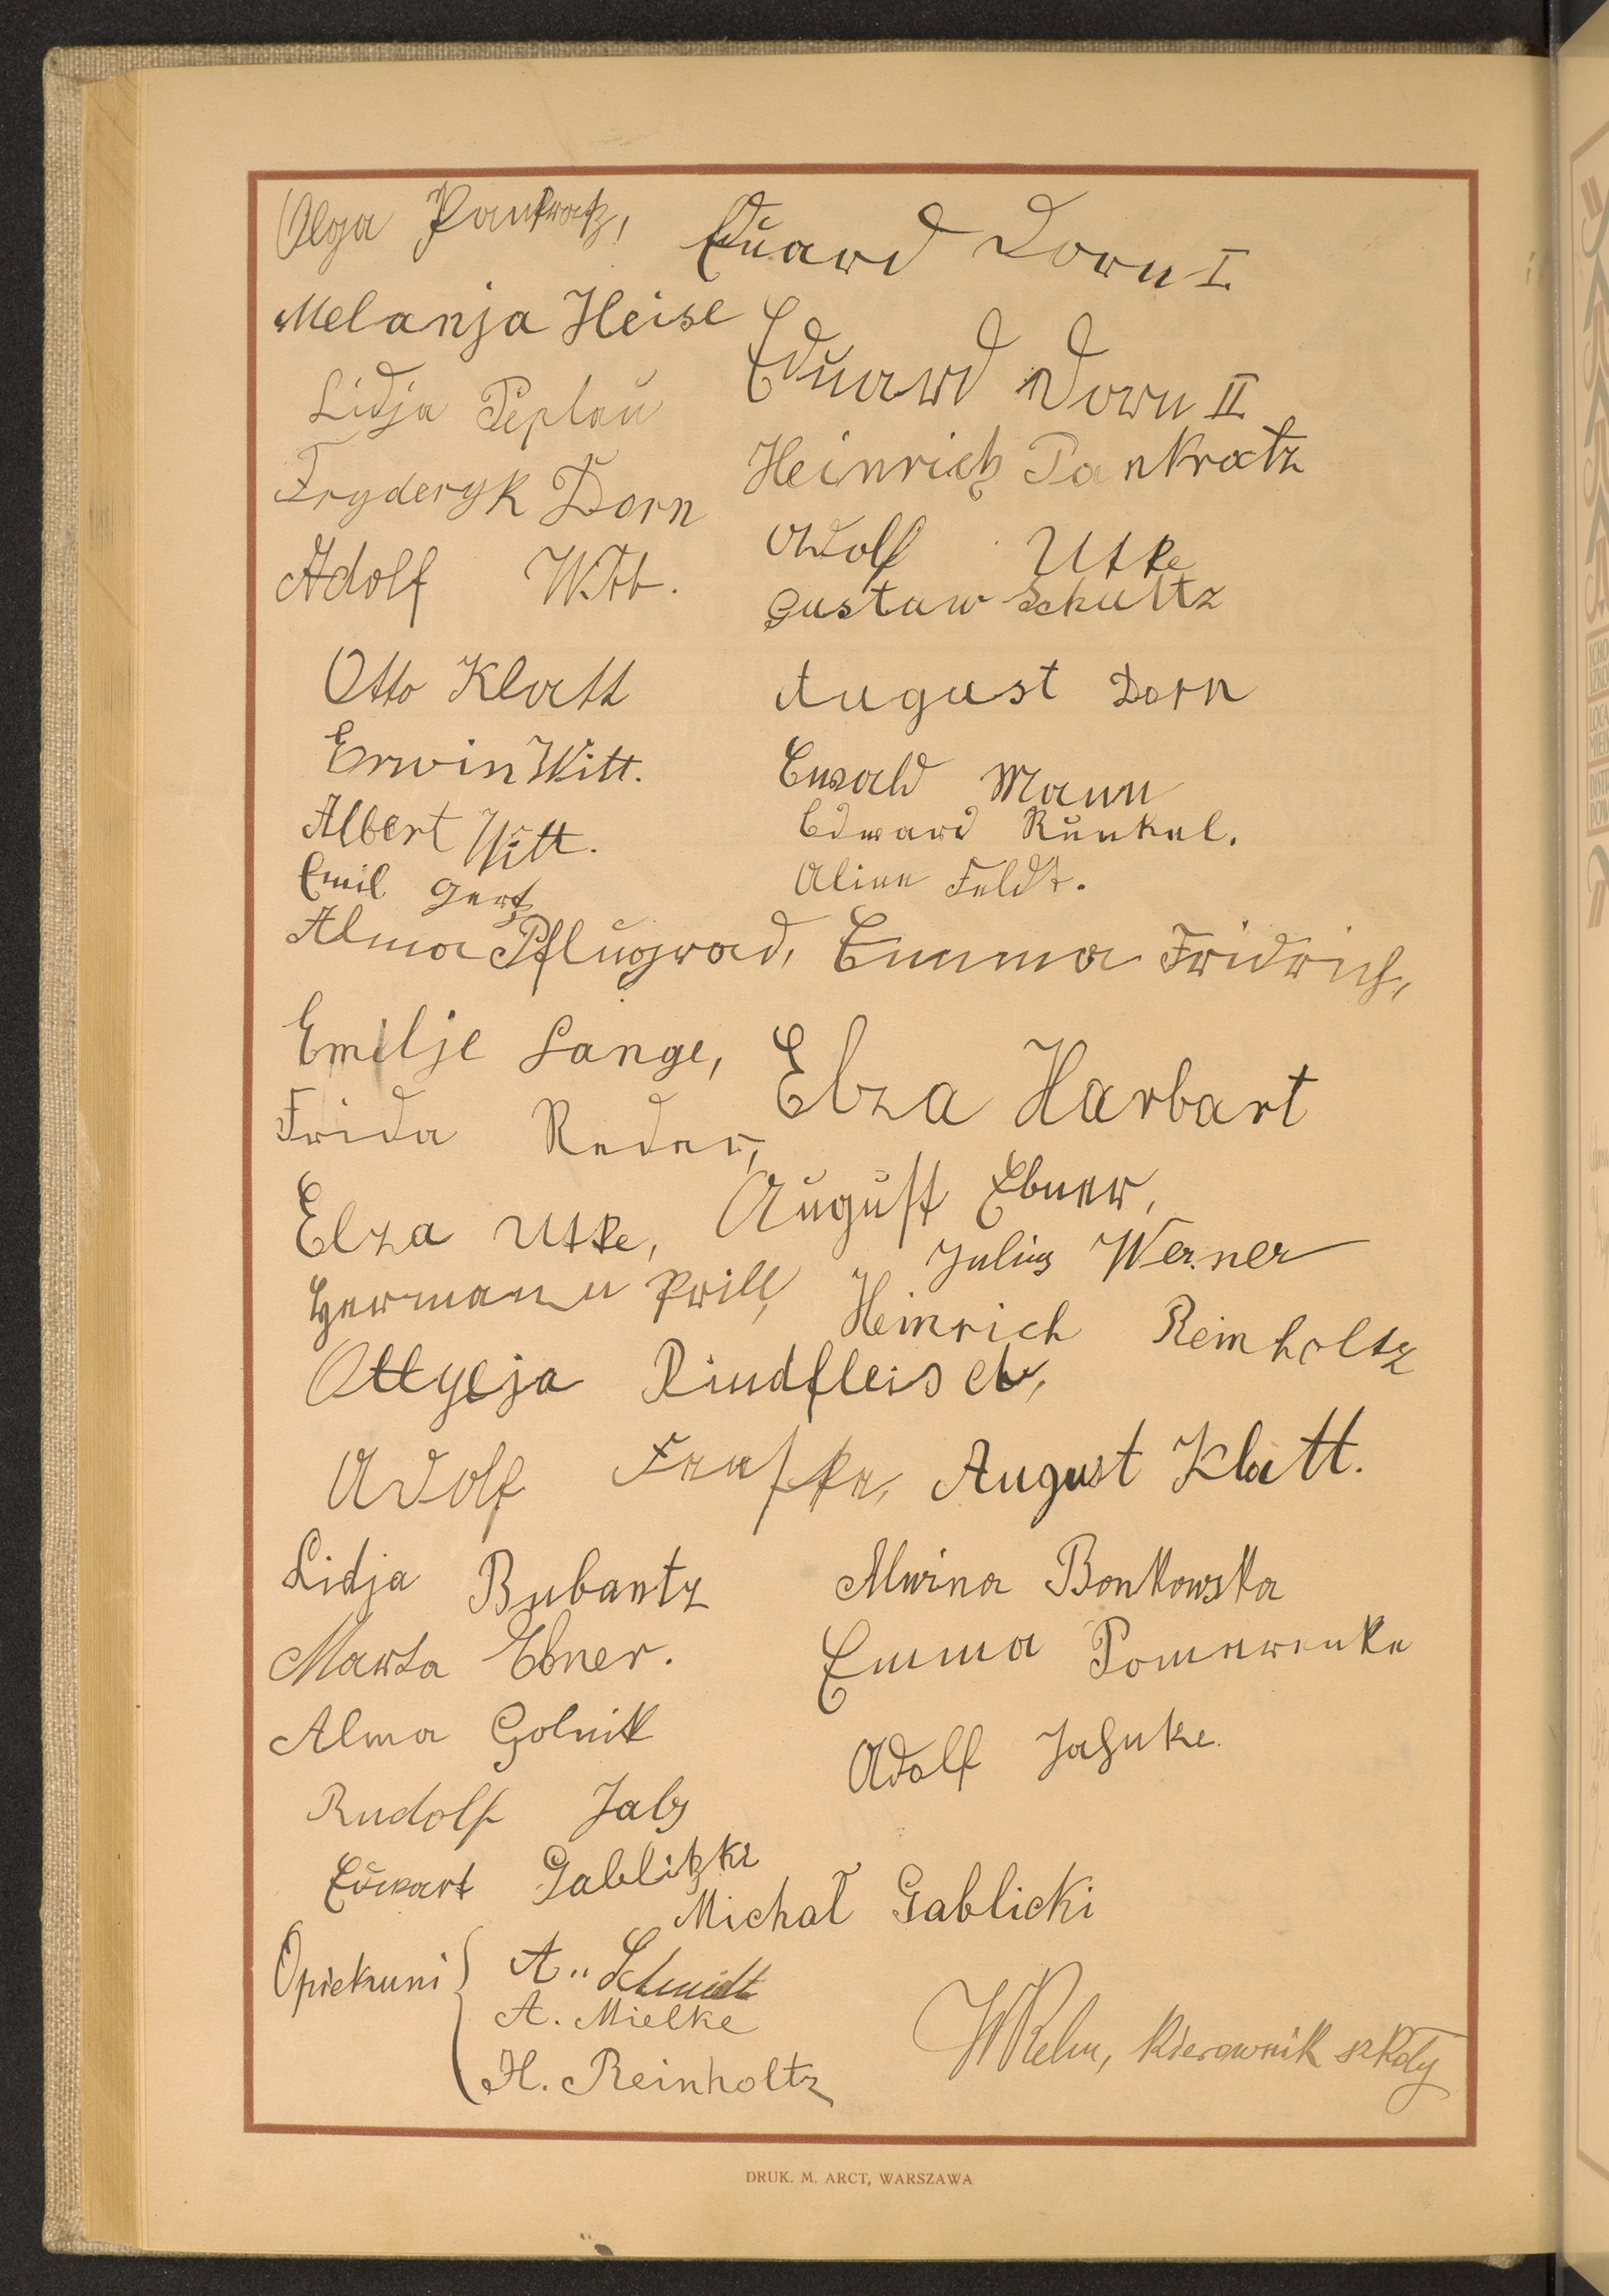 Olga Pankratz, Eduard Dorn I.
Melanja Heise
Eduard Dorn II
Lidja Peplau
Heinrich Pankratz
Fryderyk Dorn
Adolf Utke
Adolf Witt.
Gustaw Schultz
Otto Klatt August Dorn
Erwin Witt. Ewald Mann
Albert Witt. Edward Runkel.
Emil Gertz Aline Feldt.
Alma Pflugrad, Emma Fridrich,
Emilje Lange, Elza Harbart
Frida Reder,
Elza Utke, August Ebner,
Julius Werner
Hermann Prill,
Heinrich Reinholtz
Ottyeja Rindfleisch,
Adolf August Klatt.
Lidja Bubantz Alwina Bonkowska
Marta Ebner. Emma Pomerenke
Alma Golnik
Adolf Jahnke.
Rudolf Jabs
Edwart Gablitzki
Michał Gablicki
Opiekuni A. Schmidt
A. Mielke
H. Reinholtz
WRehn, kierownik szkoły
DRUK. M. ARCT, WARSZAWA